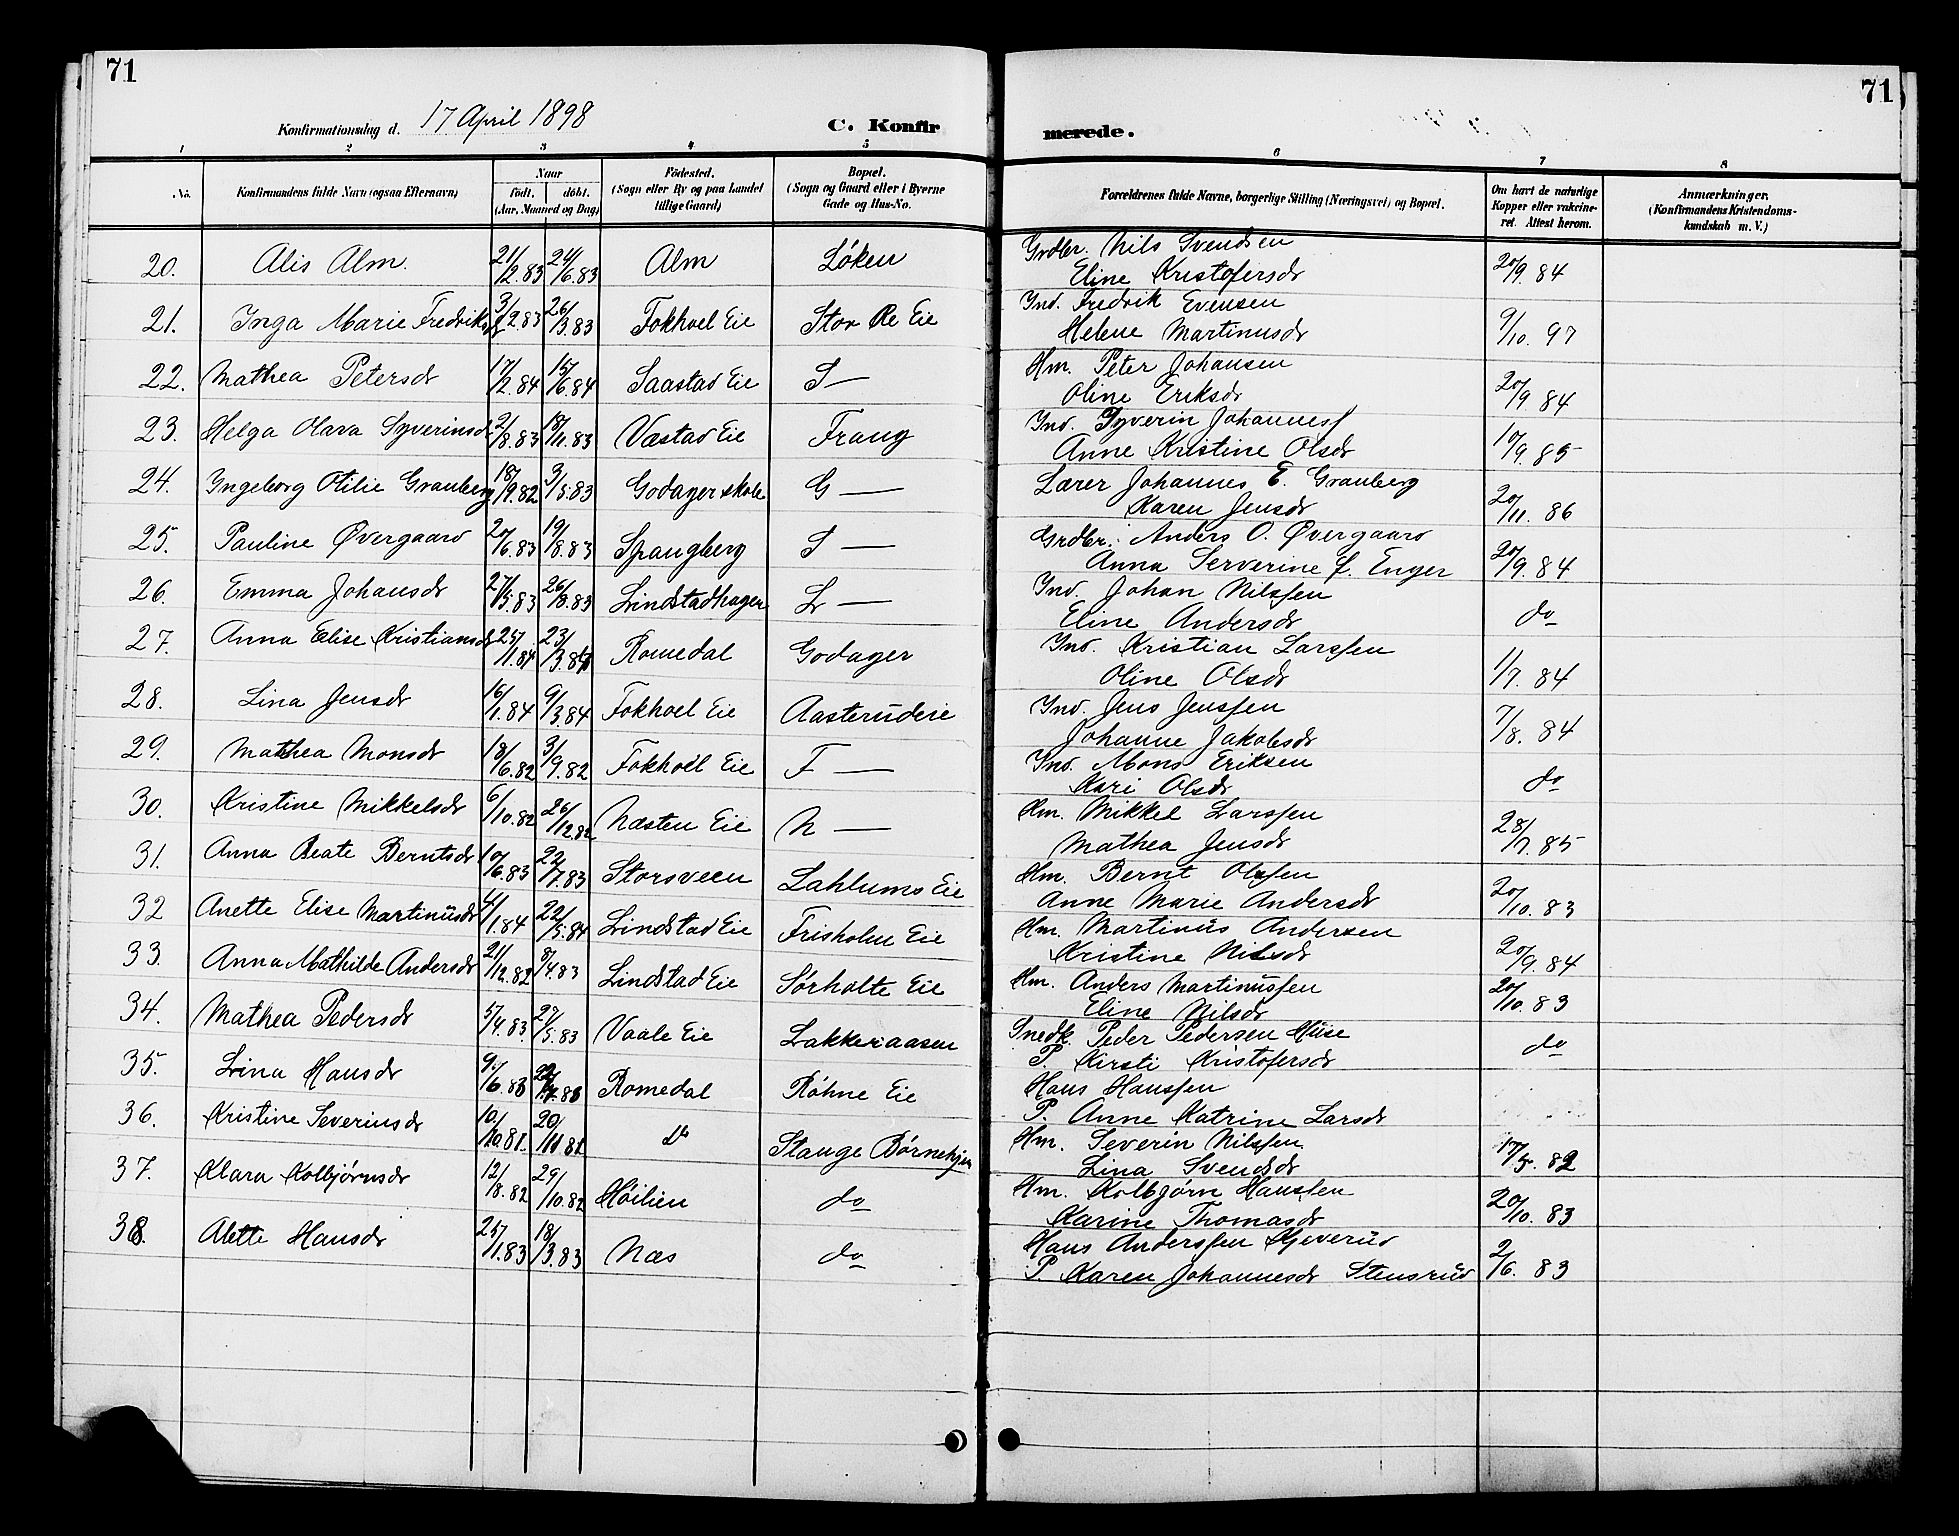 71
71
Konfirmationsdag d. 17 April 1898
C. Konfir
merede.
1 2 3 4 5 6 7 8
No.
Konfirmandens fulde Navn (ogsaa Efternavn)
Naar
født. döbt.
(Aar, Maaned og Dag)
Födested.
(Sogn eller By og paa Landet
tillige Gaard)
Bopæl.
(Sogn og Gaard eller i Byerne
Gade og Hus-No.
Forældrenes fulde Navne, borgerlige Stilling (Næringsvei) og Bopæl.
Om havt de naturlige
Kopper eller vakcine-
ret. Attest herom.
Anmærkninger.
(Konfirmandens Kristendoms-
kundskab m. V.)
20. Alis Alm. 21/12.83 24/6.83 Alm Løken Grdbr. Nils Svendsen
Eline Kristofersdr 20/9.84
21. Inga Marie Fredriksd 3/2.83 26/3.83 Fokhoel Eie Stor Re Eie Ind. Fredrik Evensen
Helene Martinusdr 9/10.97
22. Mathea Petersdr 17/2.84 15/6.84 Saastad Eie S — Hm. Peter Johansen
Oline Eriksdr 20/9.84
23. Helga Olava Syverinsd 2/8.83 18/11.83 Væstad Eie Frang Ind. Syverin Johannesf
Anne Kristine Olsdr 10/9.85
24. Ingeborg Otilie Granberg 18/9.82 3/5.83 Godager skole G — Lærer Johannes E. Granberg
Karen Jensdr 20/11.86
25. Pauline Øvergaard 20/6.83 19/8.83 Spangberg S — Grdbr. Anders O. Øvergaard
Anna Serverine f. Enger 20/9.84
26. Emma Johansdr 27/5.83 26/8.83 Lindstadhagen L — Ind. Johan Nilssen
Eline Andersdr do
27. Anna Elise Kristiansdr 25/1.84 23/3.84 Romedal Godager Ind. Kristian Larssen
Oline Olsdr 1/7.84
28. Lina Jensdr 16/1.84 9/3.84 Fokhoel Eie Aasterudeie Ind. Jens Jenssen
Johanne Jakobsdr 7/8.84
29. Mathea Monsdr 18/6.82 3/9.82 Fokhoel Eie F — Ind. Mons Eriksen
Kari Olsdr do
30. Kristine Mikkelsdr 6/10.82 26/12.82 Næsten Eie N — Hm. Mikkel Larssen
Mathea Jensdr 28/7.85
31. Anna Beate Berntsdr 10/6.83 22/7.83 Storsveen Lahlums Eie Hm. Bernt Olssen
Anne Marie Andersdr 20/10.83
32 Anette Elise Martinusdr 4/1.84 22/5.84 Lindstad Eie Frisholm Eie Hm. Martinus Andersen
Kristine Nilsdr 20/9.84
33. Anna Mathilde Andersdr 21/12.82 8/4.83 Lindstad Eie Sørholte Eie Hm. Anders Martinussen
Eline Nilsdr 20/10.83
34. Mathea Pedersdr 5/4.83. 27/5.83 Vaale Eie Lakkeraasen Snedk. Peder Pedersen Huse
P. Kirsti Kristofersdr do
35. Lina Hansdr 9/6.83 Romedal Røhne Eie Hans Hanssen
P. Anne Katrine Larsdr
36. Kristine Severinsdr 10/10.81. 20/11 81 do Stange Børnehjem Hm. Severin Nilssen
Lina Svendsdr 17/5.82
37. Klara Kolbjørnsdr 12/8.82 29/10.82 Høilien do Hm. Kolbjørn Hanssen
Karine Thomasdr 20/10.83
38. Alette Hansdr 25/1.83 18/3.83 Næs do Hans Anderssen Gjeverud
P. Karen Johannesdr Stensrud 2/6.83